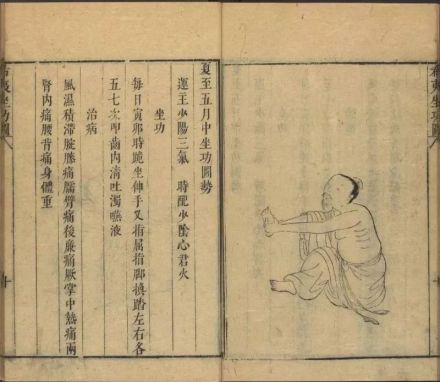 夏至五月中坐功圖勢
運主少陽三氣 時配少陰心君火
坐功
每日寅卯時跪坐伸手叉指屈指脚換踏左右各
五七次叩齒內清吐濁嚥液
治病
風濕積滯腕膝痛臑臂痛後廉痛厥掌中熱痛兩
腎內痛腰背痛身體重
坐功圖
十
坐功圖
十